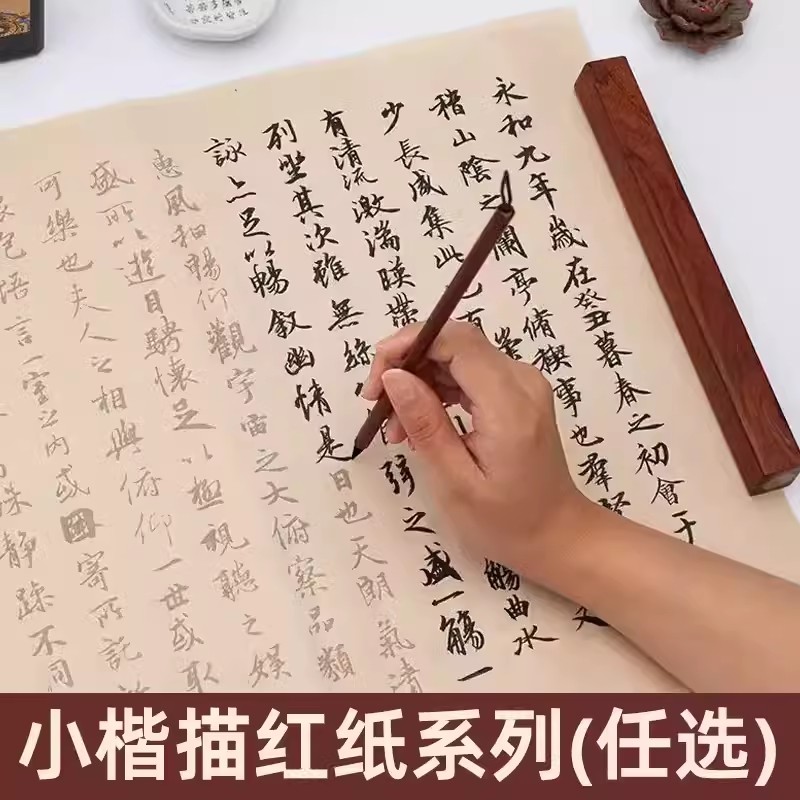 永和九年歲在癸丑暮春之初會于
稽山陰之蘭亭脩稧事也羣賢
少長咸集此地有
有清流激湍暎帶
觴曲水
列坐其次雖無絲
弦之盛一觴一
詠亦足以暢敘幽情是日也天朗氣清
惠風和暢仰觀宇宙之大俯察品類
盛所以遊目騁懷足以極視聽之娛
可樂也夫人之相與俯仰一世或取
抱悟言一室之內或因寄所託
殊靜躁不同
小楷描红纸系列(任选)